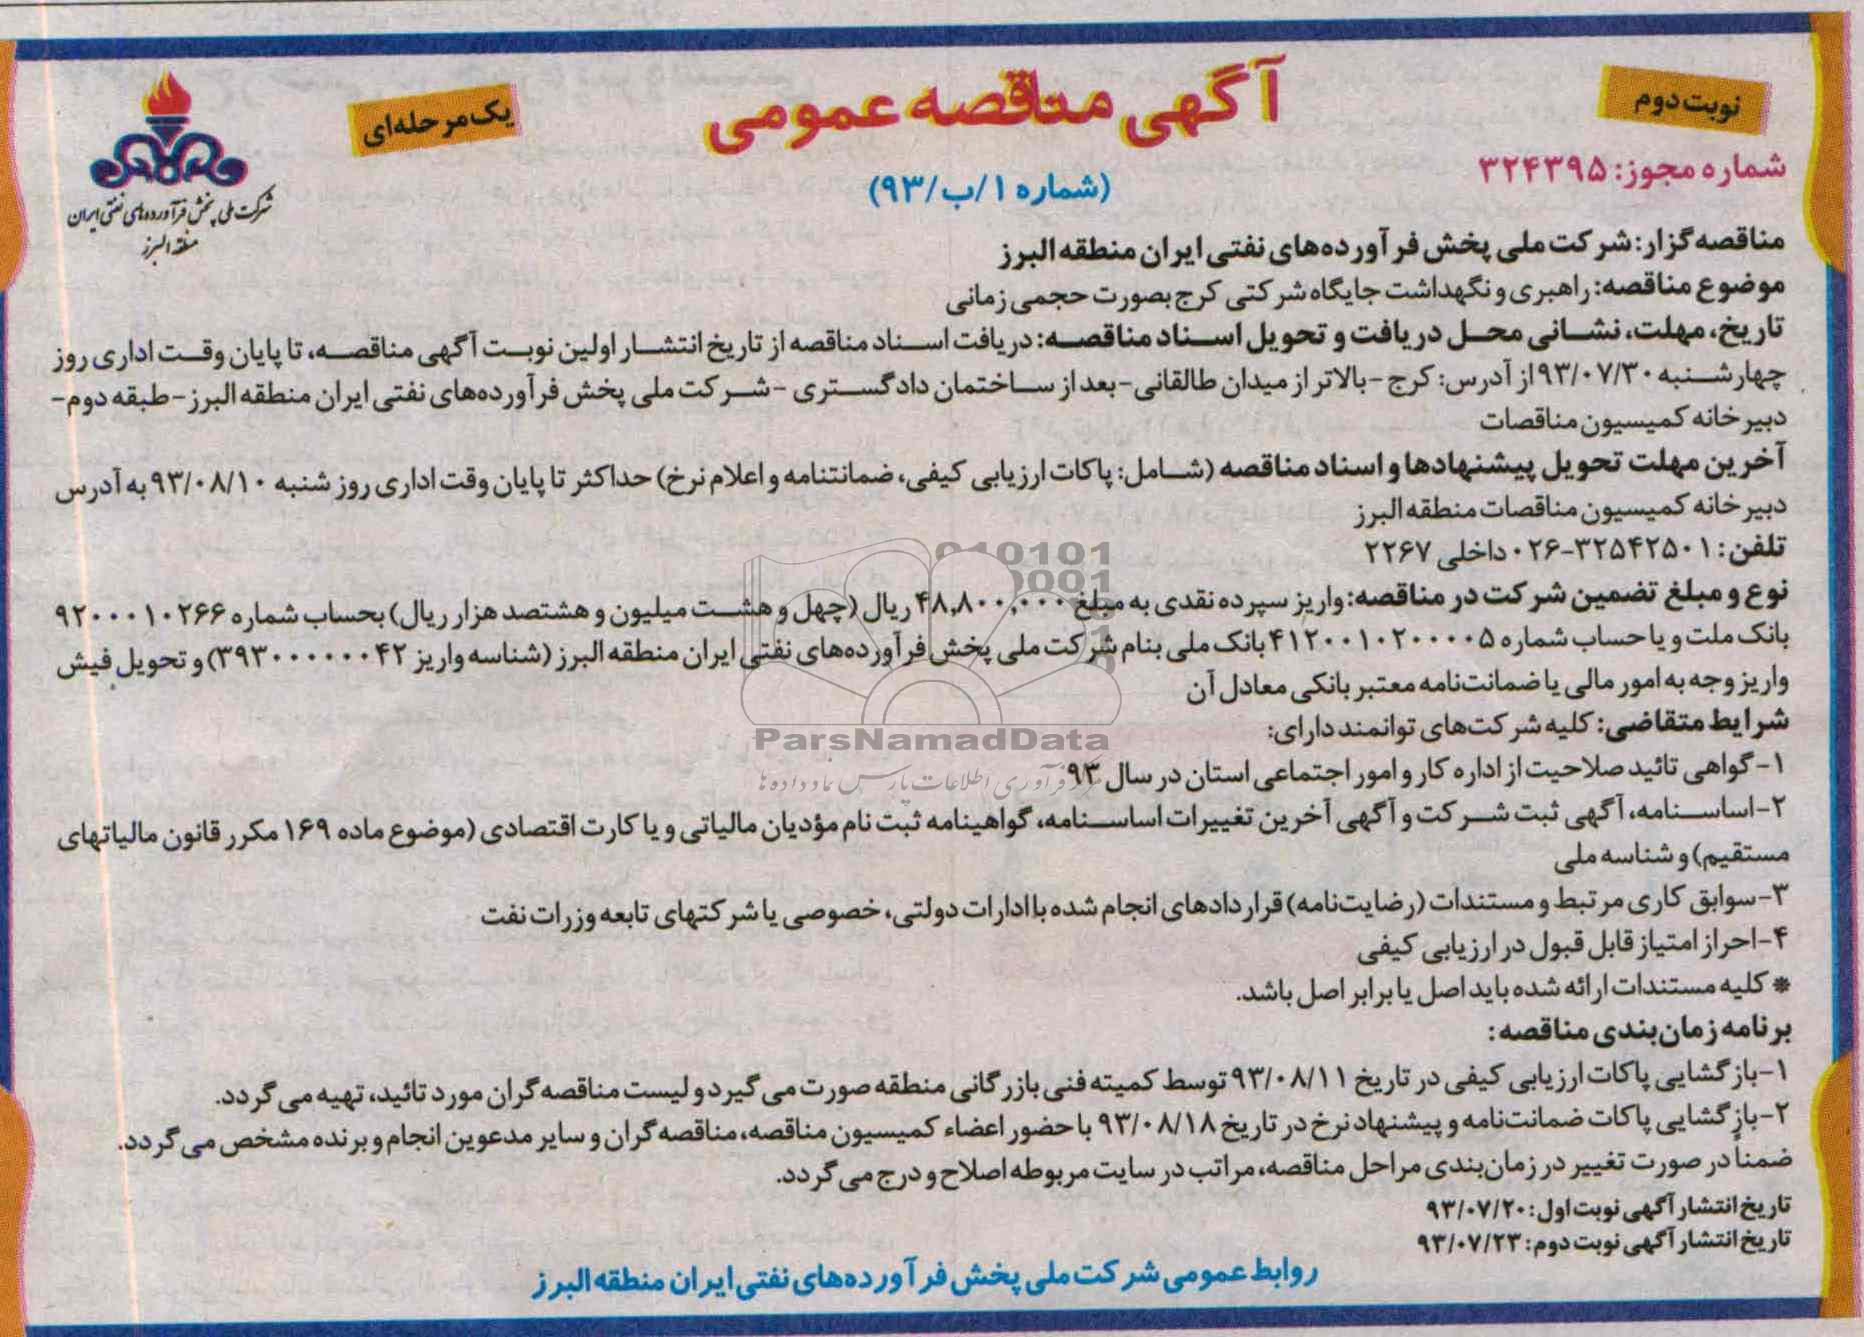 نوبت دوم
آگهی مناقصه عمومی
یک مرحله‌ای
شماره مجوز: ۳۲۴۳۹۵
(شماره ۱/ب/۹۳)
شرکت ملی پخش فرآورده‌های نفتی ایران
منطقه البرز
مناقصه‌گزار: شرکت ملی پخش فرآورده‌های نفتی ایران منطقه البرز
موضوع مناقصه: راهبری و نگهداشت جایگاه شرکتی کرج بصورت حجمی زمانی
تاریخ، مهلت، نشانی محل دریافت و تحویل اسناد مناقصه: دریافت اسناد مناقصه از تاریخ انتشار اولین نوبت آگهی مناقصه، تا پایان وقت اداری روز
چهارشنبه ۹۳/۰۷/۳۰ از آدرس: کرج -بالاتر از میدان طالقانی-بعد از ساختمان دادگستری -شرکت ملی پخش فرآورده‌های نفتی ایران منطقه البرز-طبقه دوم-
دبیرخانه کمیسیون مناقصات
آخرین مهلت تحویل پیشنهادها و اسناد مناقصه (شامل: پاکات ارزیابی کیفی، ضمانتنامه و اعلام نرخ) حداکثر تا پایان وقت اداری روز شنبه ۹۳/۰۸/۱۰ به آدرس
دبیرخانه کمیسیون مناقصات منطقه البرز
تلفن: ۳۲۵۴۲۵۰۱-۰۲۶ داخلی ۲۲۶۷
نوع و مبلغ تضمین شرکت در مناقصه: واریز سپرده نقدی به مبلغ ۴۸,۸۰۰,۰۰۰ ریال (چهل و هشت میلیون و هشتصد هزار ریال) بحساب شماره ۹۲۰۰۰۱۰۲۶۶
بانک ملت و یا حساب شماره ۴۱۲۰۰۱۰۲۰۰۰۰۵ بانک ملی بنام شرکت ملی پخش فرآورده‌های نفتی ایران منطقه البرز (شناسه واریز ۳۹۳۰۰۰۰۰۰۴۲) و تحویل فیش
واریز وجه به امور مالی یا ضمانت‌نامه معتبر بانکی معادل آن
شرایط متقاضی: کلیه شرکت‌های توانمند دارای:
۱-گواهی تائید صلاحیت از اداره کار و امور اجتماعی استان در سال ۹۳
۲-اساسنامه، آگهی ثبت شرکت و آگهی آخرین تغییرات اساسنامه، گواهینامه ثبت نام مؤدیان مالیاتی و یا کارت اقتصادی (موضوع ماده ۱۶۹ مکرر قانون مالیاتهای
مستقیم) و شناسه ملی
۳-سوابق کاری مرتبط و مستندات (رضایت‌نامه) قراردادهای انجام شده با ادارات دولتی، خصوصی یا شرکتهای تابعه وزرات نفت
۴-احراز امتیاز قابل قبول در ارزیابی کیفی
* کلیه مستندات ارائه شده باید اصل یا برابر اصل باشد.
برنامه زمان‌بندی مناقصه:
۱-بازگشایی پاکات ارزیابی کیفی در تاریخ ۹۳/۰۸/۱۱ توسط کمیته فنی بازرگانی منطقه صورت می‌گیرد و لیست مناقصه‌گران مورد تائید، تهیه می‌گردد.
۲-بازگشایی پاکات ضمانت‌نامه و پیشنهاد نرخ در تاریخ ۹۳/۰۸/۱۸ با حضور اعضاء کمیسیون مناقصه، مناقصه‌گران و سایر مدعوین انجام و برنده مشخص می‌گردد.
ضمناً در صورت تغییر در زمان‌بندی مراحل مناقصه، مراتب در سایت مربوطه اصلاح و درج می‌گردد.
تاریخ انتشار آگهی نوبت اول: ۹۳/۰۷/۲۰
تاریخ انتشار آگهی نوبت دوم: ۹۳/۰۷/۲۳
روابط عمومی شرکت ملی پخش فرآورده‌های نفتی ایران منطقه البرز
ParsNamadData
مرکز فرآوری اطلاعات پارس نماد داده‌ها